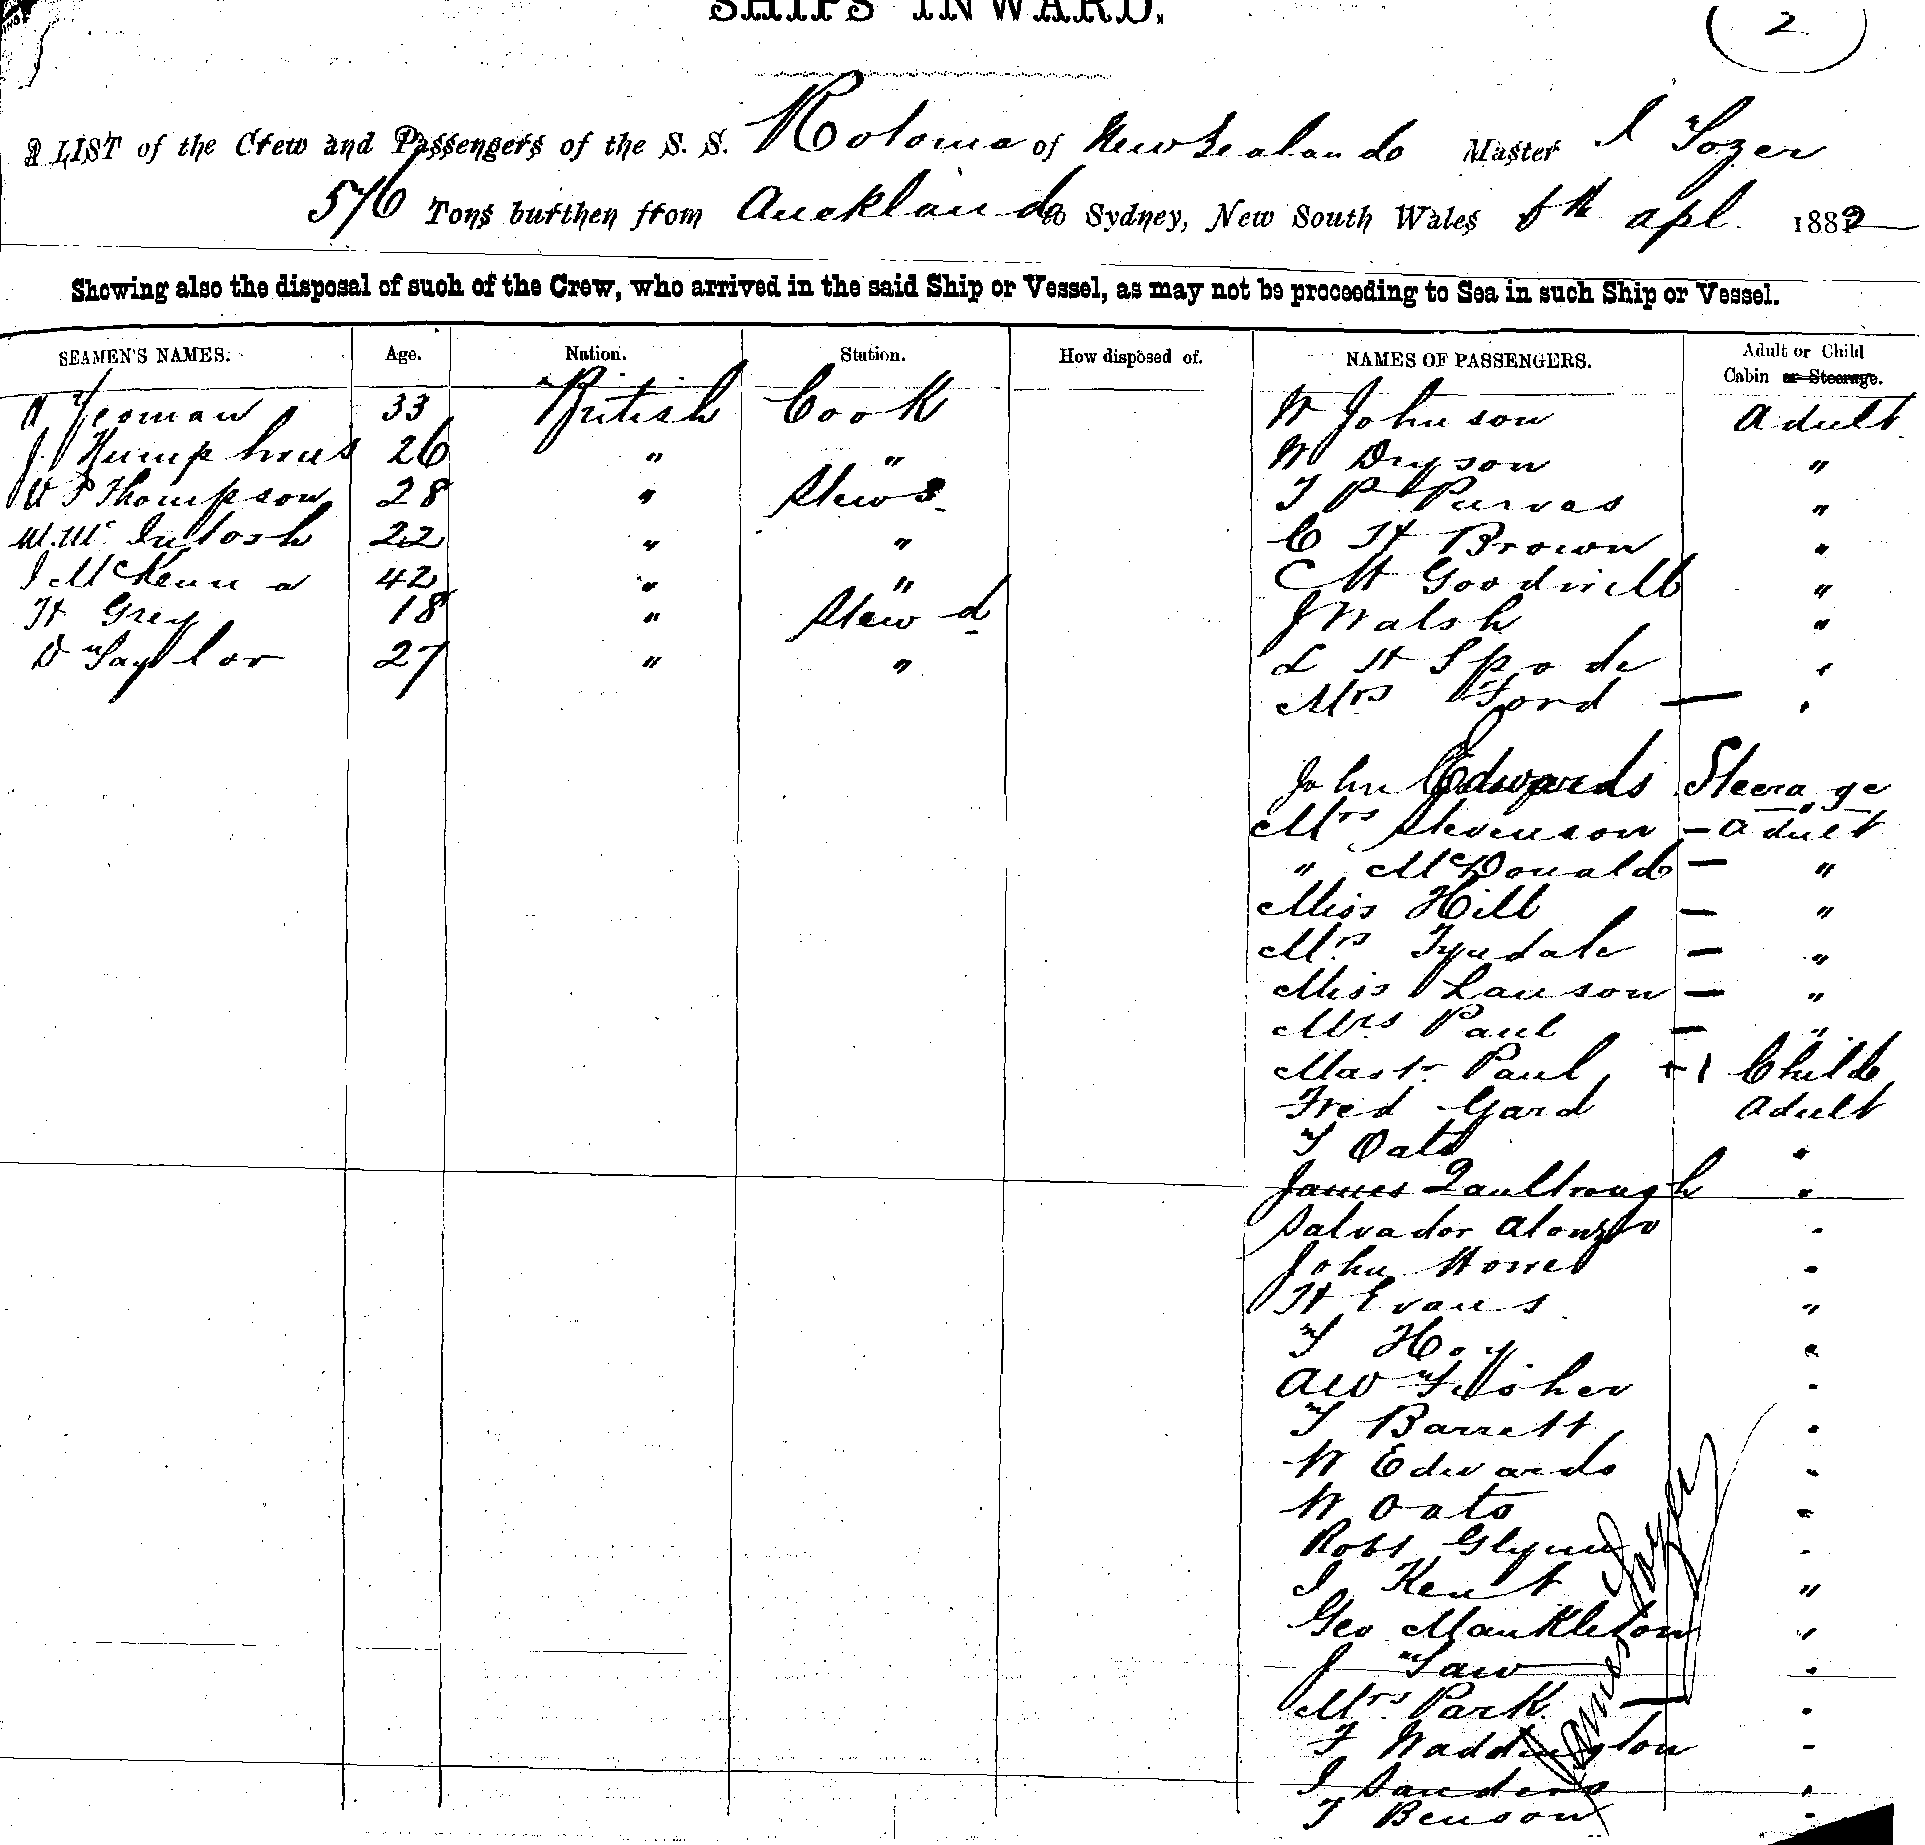 SHIPS INWARD.
2
A LIST of the Crew and Passengers of the S. S. Rotoma of New Zealand Master J Tozer
576 Tons burthen from Auckland to Sydney, New South Wales 8th apl. 1882
Showing also the disposal of such of the Crew, who arrived in the said Ship or Vessel, as may not be proceeding to Sea in such Ship or Vessel.
SEAMEN'S NAMES. Age. Nation. Station. How disposed of. NAMES OF PASSENGERS. Adult or Child
Cabin or Steerage.
Yeoman 33 British Cook W Johnson Adult
J. Humphreus 26 " " W Dryson "
W P Thompson 28 " Stews T P Purves "
W. Mc Intosh 22 " " C H Brown "
J McKenna 42 " " C H Goodwill "
H Grey 18 " Stewd J Walsh "
D Taylor 27 " " L H Spode "
Mrs Ford — "
John Edwards Steerage
Mrs Stevenson — adult
" McDonald — "
Miss Hill — "
Mrs Tyndale — "
Miss Lawson — "
Mrs Paul — "
Mastr Paul +1 Child
Fred Gard adult
T Oats "
James Qualtrough "
Salvador Alonzo "
John Howe "
H Evans "
T Hoy "
A W Fisher "
T Barrett "
W Edwards "
W Oats "
Robt Glynn "
J Kent "
Geo Mankleton "
J Taw "
Mrs Park — "
F Waddington "
J Sanders "
T Benson "
James Tozer